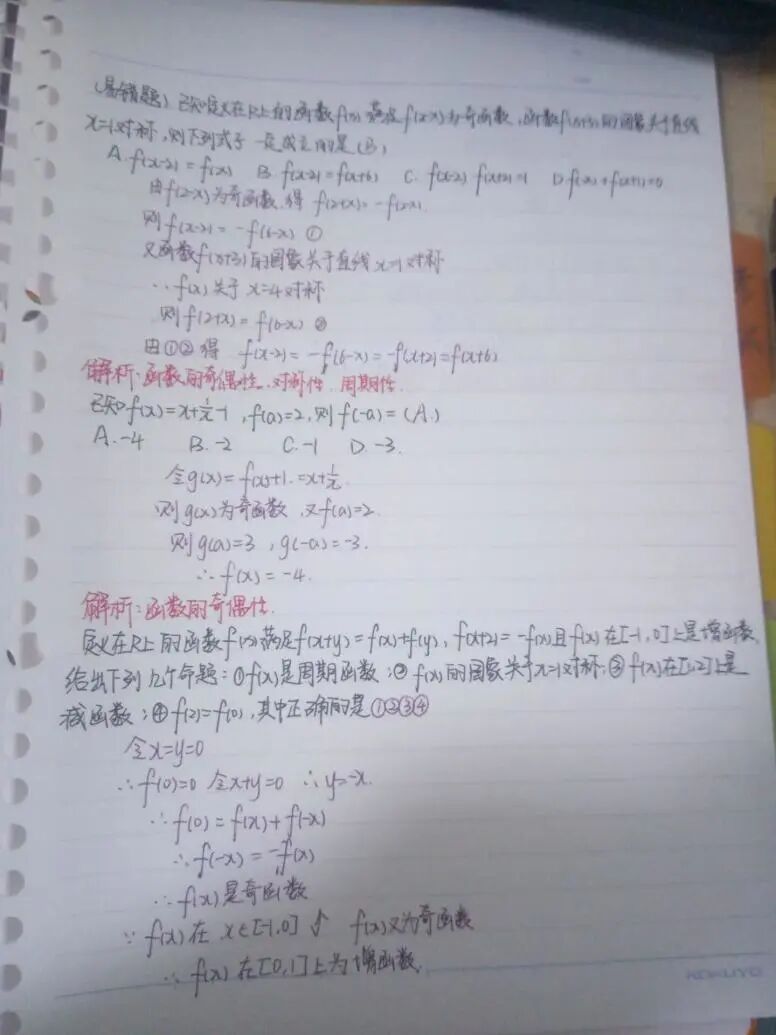 (易错题) 已知定义在R上的函数f(x)满足f(2-x)为奇函数,函数f(x+3)的图象关于直线
x=1对称,则下列式子一定成立的是(B)
A.f(x-2)=f(x) B.f(x-2)=f(x+6) C.f(x-2)·f(x+2)=1 D.f(x)+f(x+1)=0
由f(2-x)为奇函数,得 f(2+x)=-f(2-x).
则f(x-2)=-f(6-x) ①
又函数f(x+3)的图象关于直线x=1对称
∴f(x)关于x=4对称
则f(2+x)=f(6-x) ②
由①②得 f(x-2)=-f(6-x)=-f(x+2)=f(x+6)
解析:函数的奇偶性、对称性、周期性.
已知f(x)=x+1/x-1,f(a)=2,则f(-a)=(A.)
A.-4 B.-2 C.-1 D.-3.
令g(x)=f(x)+1.=x+1/x.
则g(x)为奇函数,又f(a)=2.
则g(a)=3,g(-a)=-3.
∴f(x)=-4.
解析:函数的奇偶性.
定义在R上的函数f(x)满足f(x+y)=f(x)+f(y),f(x+2)=-f(x)且f(x)在[-1,0]上是增函数,
给出下列几个命题:①f(x)是周期函数;②f(x)的图象关于x=1对称;③f(x)在[1,2]上是
减函数;④f(2)=f(0),其中正确的是①②③④
令x=y=0
∴f(0)=0 令x+y=0 ∴y=-x.
∴f(0)=f(x)+f(-x)
∴f(-x)=-f(x)
∴f(x)是奇函数
∵f(x)在x∈[-1,0]↑ f(x)又为奇函数
∴f(x)在[0,1]上为增函数.
KOKUYO